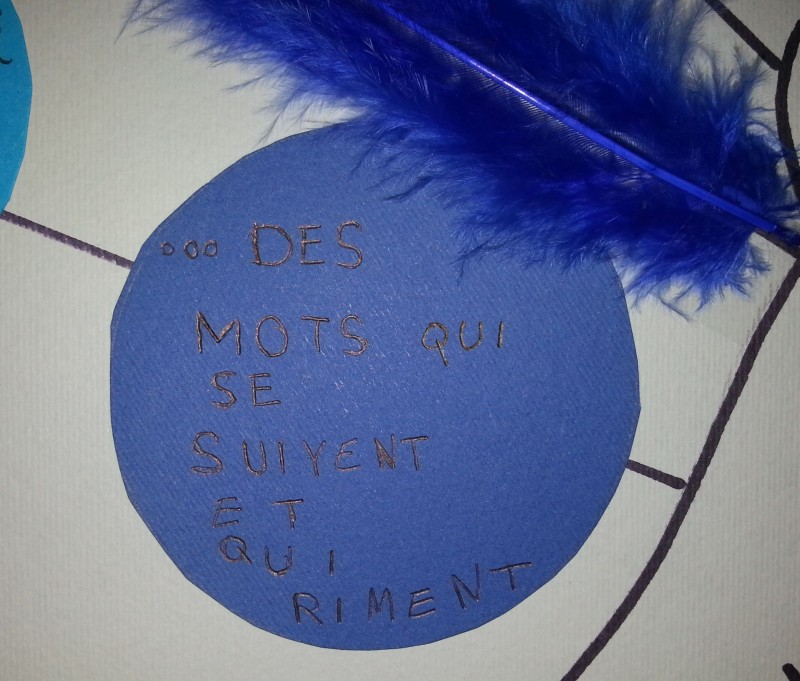 ... DES
MOTS QUI
SE
SUIVENT
ET
QUI
RIMENT